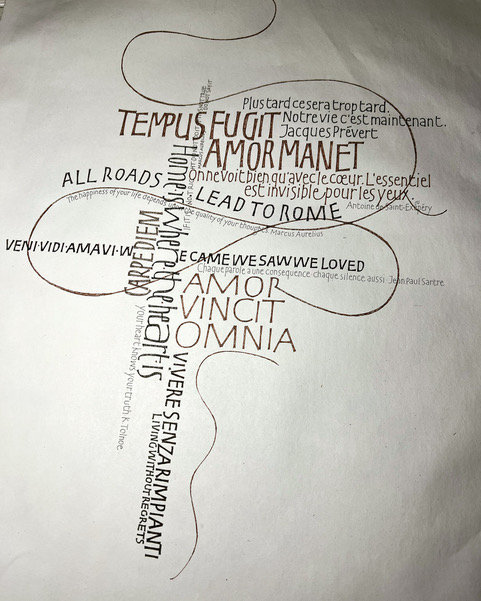 Plus tard ce sera trop tard.
Notre vie c'est maintenant.
Jacques Prévert
TEMPUS FUGIT
AMOR MANET
On ne voit bien qu'avec le cœur. L'essentiel
est invisible pour les yeux
Antoine de Saint-Exupéry
ALL ROADS LEAD TO ROME
The happiness of your life depends quality of your thoughts. Marcus Aurelius
VENI·VIDI·AMAVI·WE CAME WE SAW WE LOVED
Chaque parole a une conséquence chaque silence, aussi Jean Paul Sartre
AMOR
VINCIT
OMNIA
CARPE DIEM
Home is where the heart is
your heart knows your truth K Tolnoe
VIVERE SENZA RIMPIANTI
LIVING WITHOUT REGRETS
IF IT IS NOT RIGHT DO NOT